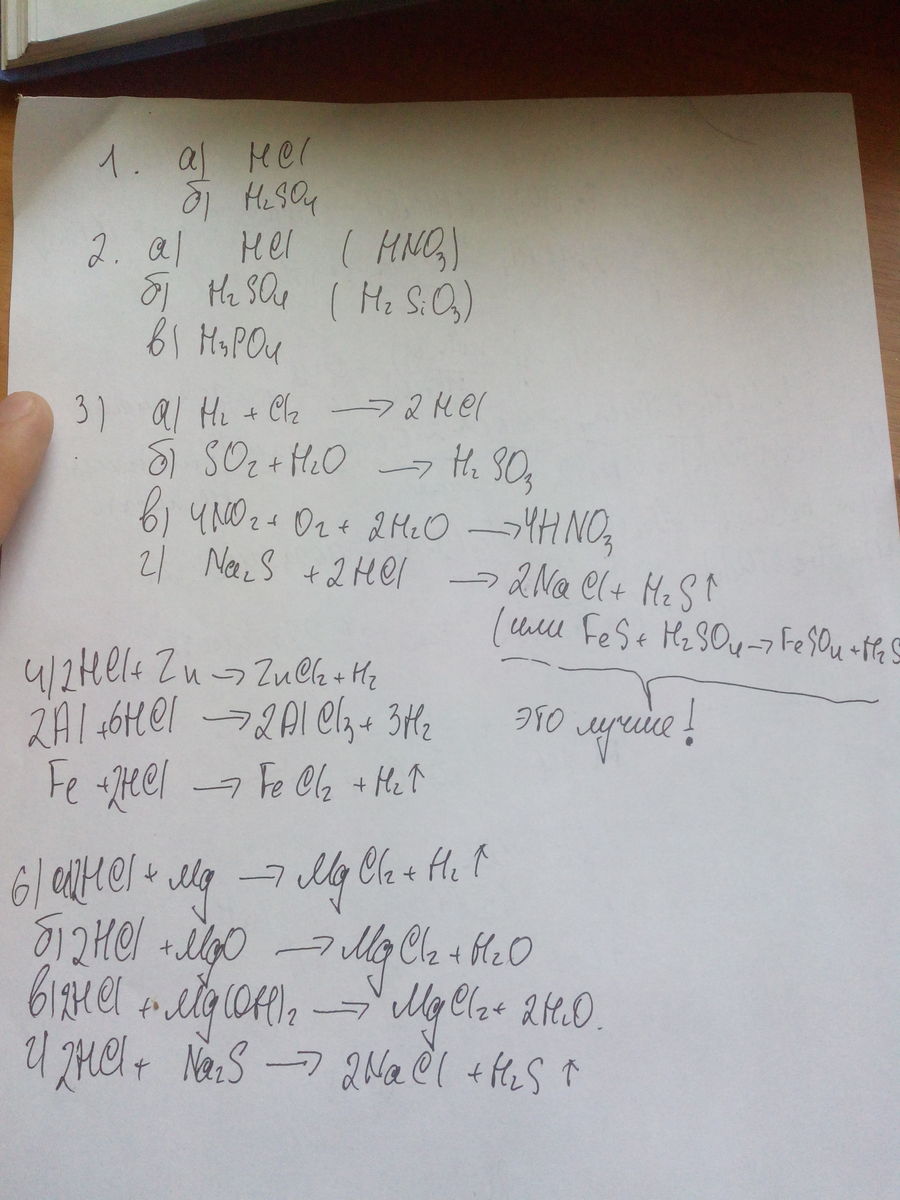 1. а) HCl
б) H₂SO₄
2. а) HCl (HNO₃)
б) H₂SO₄ (H₂SiO₃)
в) H₃PO₄
3) а) H₂ + Cl₂ → 2HCl
б) SO₂ + H₂O → H₂SO₃
в) 4NO₂ + O₂ + 2H₂O → 4HNO₃
г) Na₂S + 2HCl → 2NaCl + H₂S↑
(или FeS + H₂SO₄ → FeSO₄ + H₂S
это лучше!
4) 2HCl + Zn → ZnCl₂ + H₂
2Al + 6HCl → 2AlCl₃ + 3H₂
Fe + 2HCl → FeCl₂ + H₂↑
6) а) 2HCl + Mg → MgCl₂ + H₂↑
б) 2HCl + MgO → MgCl₂ + H₂O
в) 2HCl + Mg(OH)₂ → MgCl₂ + 2H₂O.
г) 2HCl + Na₂S → 2NaCl + H₂S↑